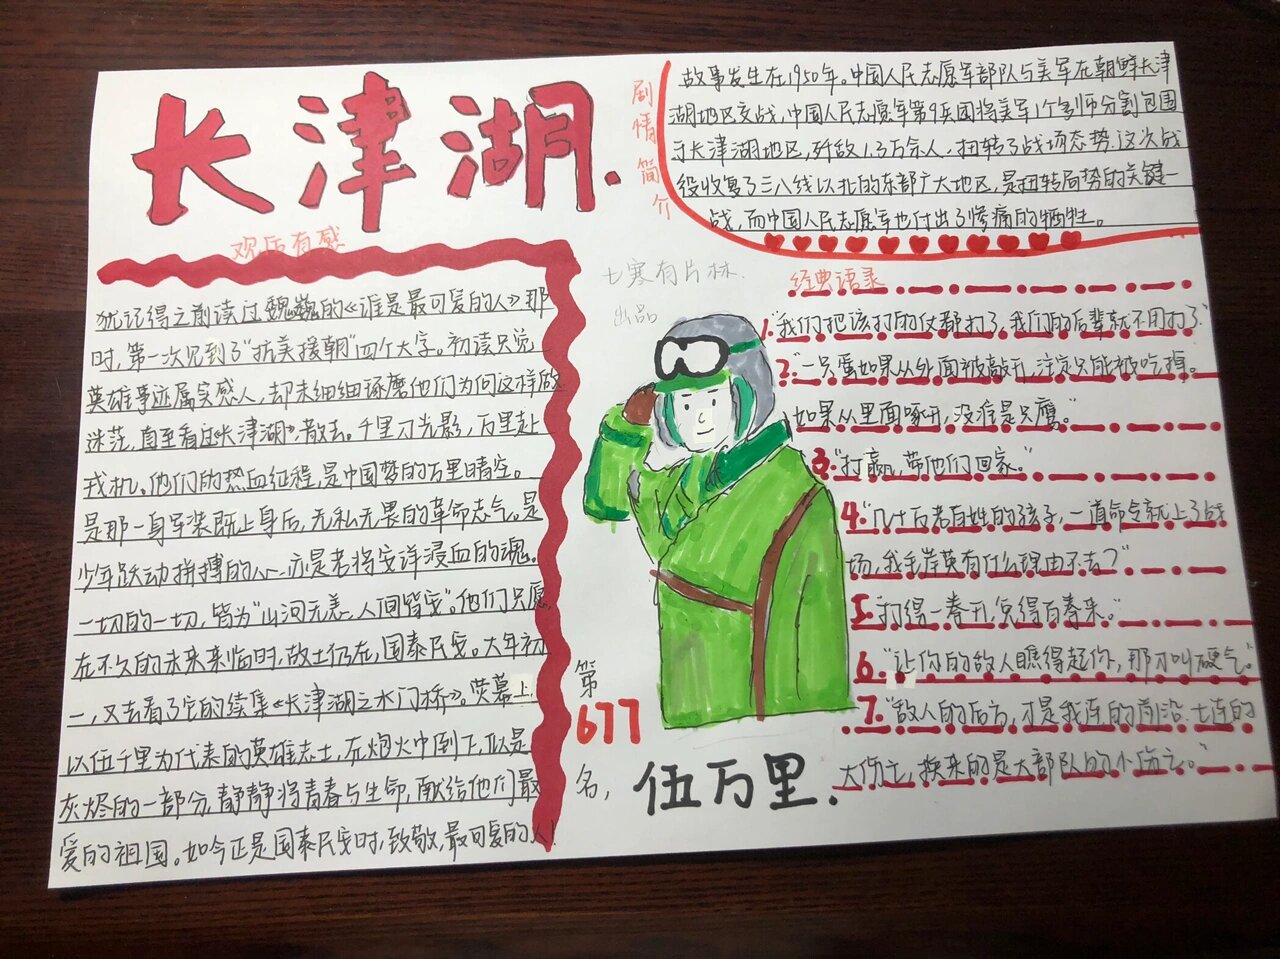 长津湖.
剧情简介
故事发生在1950年。中国人民志愿军部队与美军在朝鲜长津
湖地区交战,中国人民志愿军第9兵团将美军1个多师分割包围
于长津湖地区,歼敌1.3万余人,扭转了战场态势.这次战
役收复了三八线以北的东部广大地区,是扭转局势的关键一
战,而中国人民志愿军也付出了惨痛的牺牲。
观后有感
犹记得之前读过魏巍的《谁是最可爱的人》那
时,第一次见到了“抗美援朝”四个大字。初读只觉
英雄事迹属实感人,却未细细琢磨他们为何这样做
迷茫,直至看过《长津湖》散去。千里刀光影,万里赴
戎机。他们的热血征程,是中国梦的万里晴空。
是那一身军装既上身后,无私无畏的革命志气。是
少年跃动拼搏的心,亦是老将安详浸血的魂。
一切的一切,皆为“山河无恙,人间皆安”。他们只愿
在不久的未来来临时,故土仍在,国泰民安。大年初
一,又去看了它的续集《长津湖之水门桥》。荧幕上
以伍千里为代表的英雄志士,在炮火中倒下,似是
灰烬的一部分,静静将青春与生命,献给他们最
爱的祖国。如今正是国泰民安时,致敬,最可爱的人!
七寒有片林.
出品
第
677
名,
伍万里.
经典语录
1.“我们把该打的仗都打了,我们的后辈就不用打了”
2.“一只蛋如果从外面被敲开,注定只能被吃掉。
如果从里面啄开,没准是只鹰。”
3.“打赢,带他们回家。”
4.“几十万老百姓的孩子,一道命令就上了战
场,我毛岸英有什么理由不去?”
5.“打得一拳开,免得百拳来。”
6.“让你的敌人瞧得起你,那才叫硬气。”
7.“敌人的后方,才是我连的前沿.七连的
大伤亡,换来的是大部队的小伤亡。”